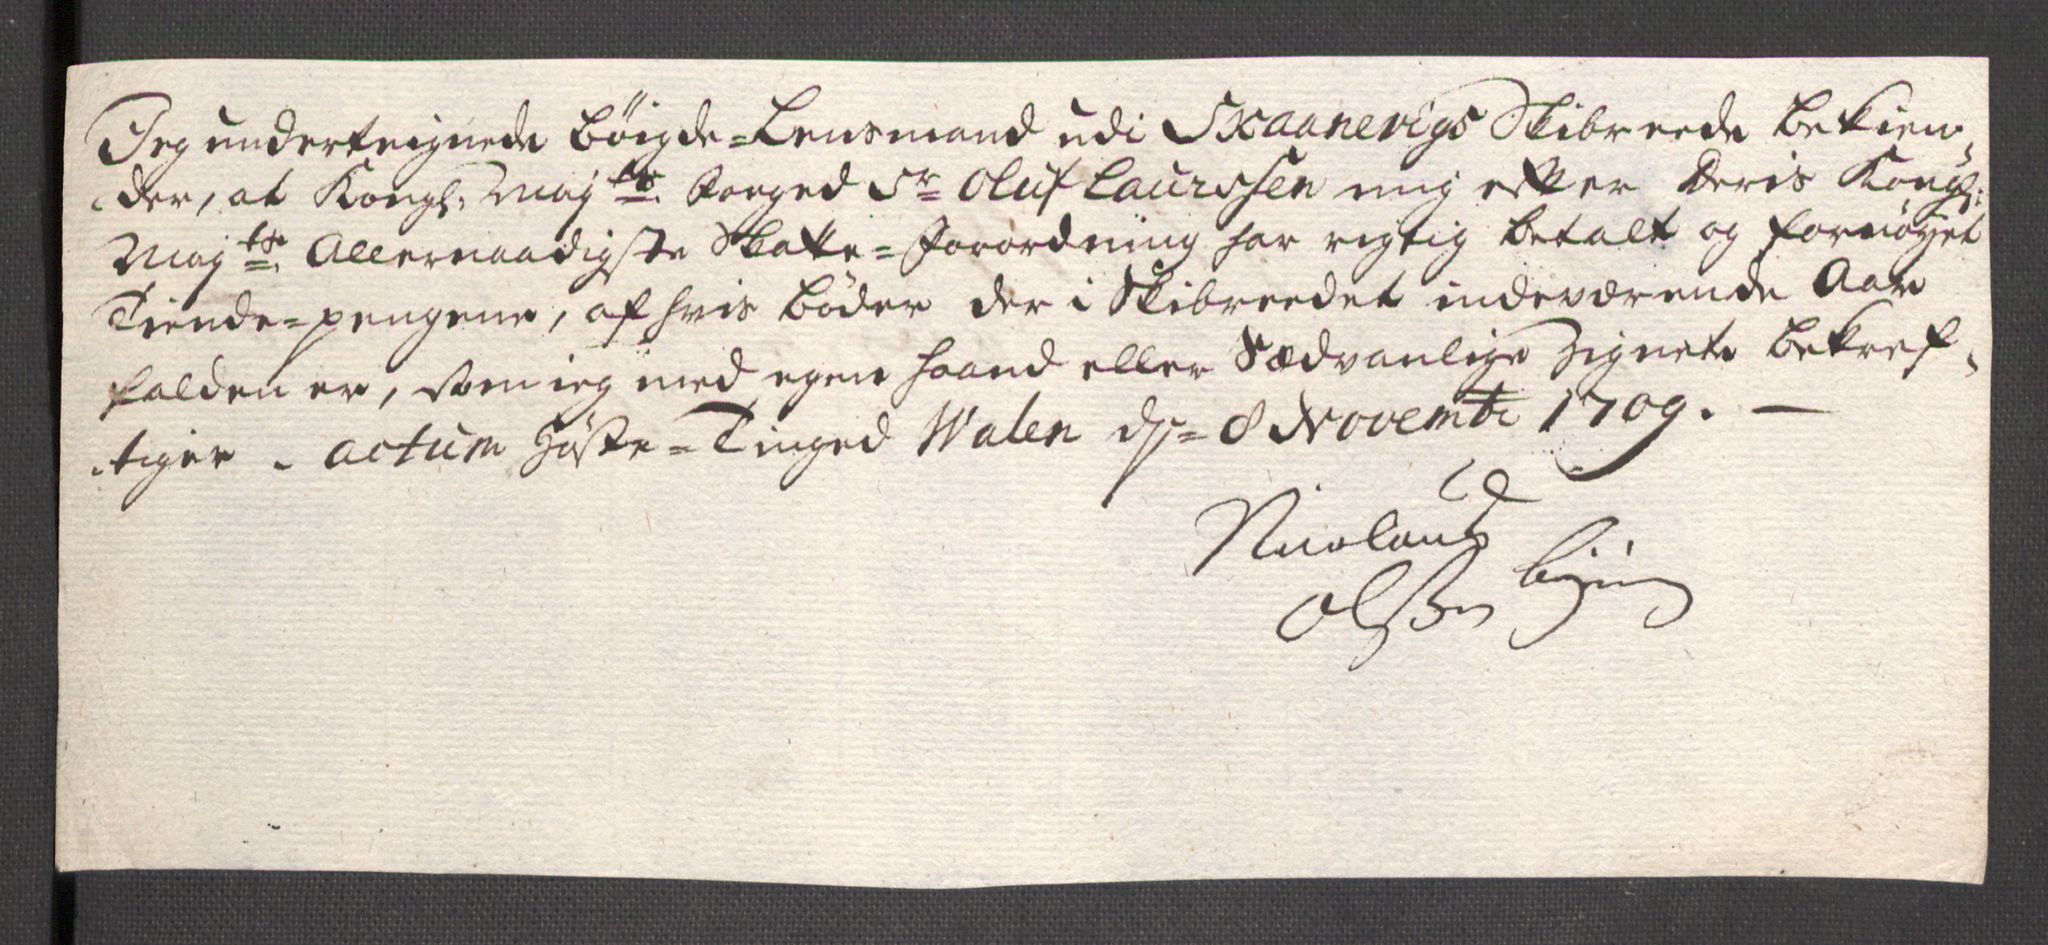 Jeg underteignede Böigde=Lensmand udi Skaanevigs Skibreede bekien-
der, at Kongl: Maÿts. Foeged Sr Oluf Laurssen mig effter Deris Kongl:
Maÿts. Allernaadigste Skatte=Forordning har rigtig betalt og fornöyet
Tiende=pengene, af hvis böder der i Skibreedet indeværende Aar
falden er, som ieg med egen haand eller Sædvanlige Zignete bekref-
tiger. actum Höste=Tinged Walen dn 8 Novembr 1709.
Nicolaus
Olssen